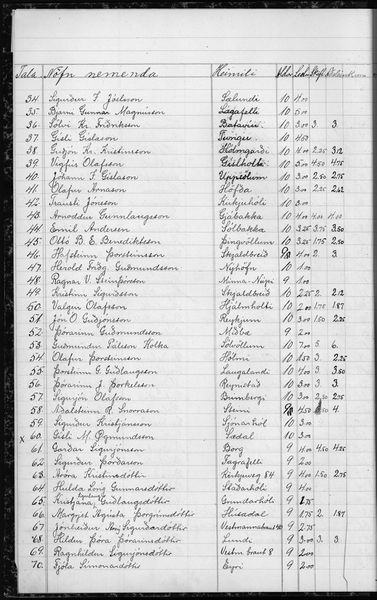 Tala Nöfn nemenda Heimili
34. Sigurður F. Jóelsson Sælundi 10 4.00
35. Bjarni Gunnar Magnússon Lágafelli 10 5.00
36. Sölvi Kr. Friðriksson Batavíu 10 3.00 3. 3
37. Gísli Gíslason Tungu 10 4.50
38. Guðjón Kr. Kristinsson Hólmgarði 10 4.00 2.25 3.12
39. Vigfús Ólafsson Gíslholti 10 5.00 4.50 4.75
40. Jóhann F. Gíslason Uppsölum 10 3.00 2.50 2.75
41. Ólafur Árnason Höfða 10 3.00 2.25 2.62
42. Trausti Jónsson Kirkjuhóli 10 3.00
43. Arnoddur Gunnlaugsson Gjábakka 10 4.00 4.00 4.00
44. Emil Andersen Sólbakka 10 3.25 3.75 3.50
45. Ottó B. E. Benediktsson Þingvöllum 10 3.25 1.75 2.50
46. Hafsteinn Þorsteinsson Skjaldbreið 4.00 2. 3
47. Herold Friðg. Guðmundsson Nýhöfn 10 1.00
48. Ragnar V. Steinþórsson Minna-Núpi 9 1.00
49. Kristinn Sigurðsson Skjaldbreið 10 2.25 2. 2.12
50. Valgeir Ólafsson Hjálmholti 10 2.00 1.75 1.87
51. Jón Ó. Guðjónsson Reykjum 10 3.00 1.50 2.25
52. Þórarinn Guðmundsson Miðbæ 9 2.00
53. Guðmundur Sölvöllum 10 7.00 5. 6.
54. Ólafur Þorsteinsson Hólmi 10 1.50 3. 2.25
55. Þorsteinn G. Guðlaugsson Laugalandi 10 4.00 3. 3.50
56. Þórarinn J. Þorkelsson Reynistað 10 3.00 3. 3.
57. Sigurjón Ólafsson Bunnbergi 10 2.00 2.50 2.25
58. Aðalsteinn R. Snorrason Steini 4.50 4
59. Sigurður Kristjánsson Sjónarhól 10 3.00
x 60. Gísli M. Ögmundsson Sædal 10 3.00
61. Garðar Sigurjónsson Borg 9 4.00 4.50 4.25
62. Sigurður Þórðarson Fagrafelli 9 2.00
63. Árora Kristinsdóttir Kirkjuveg 84 9 4.00 1.50 2.75
64. Hulda Long Gunnarsdóttir Staðarhóli 9 4.00
65. Kristjana Guðlaugsdóttir Gunnarhóli 9 1.75
66. Margrét Ágústa Þorgrímsdóttir Húsadal 9 1.75 2. 1.87
67. Jónheiður Árný Sigurðardóttir Vestmannabraut 9 2.75
68. Hildur Þóra Þórarinsdóttir Lundi 9 3.00 3. 3.
69. Ragnhildur Sigurjónsdóttir Vestm. braut 8 9 2.00
70. Fjóla Símonardóttir Eyri 9 2.00